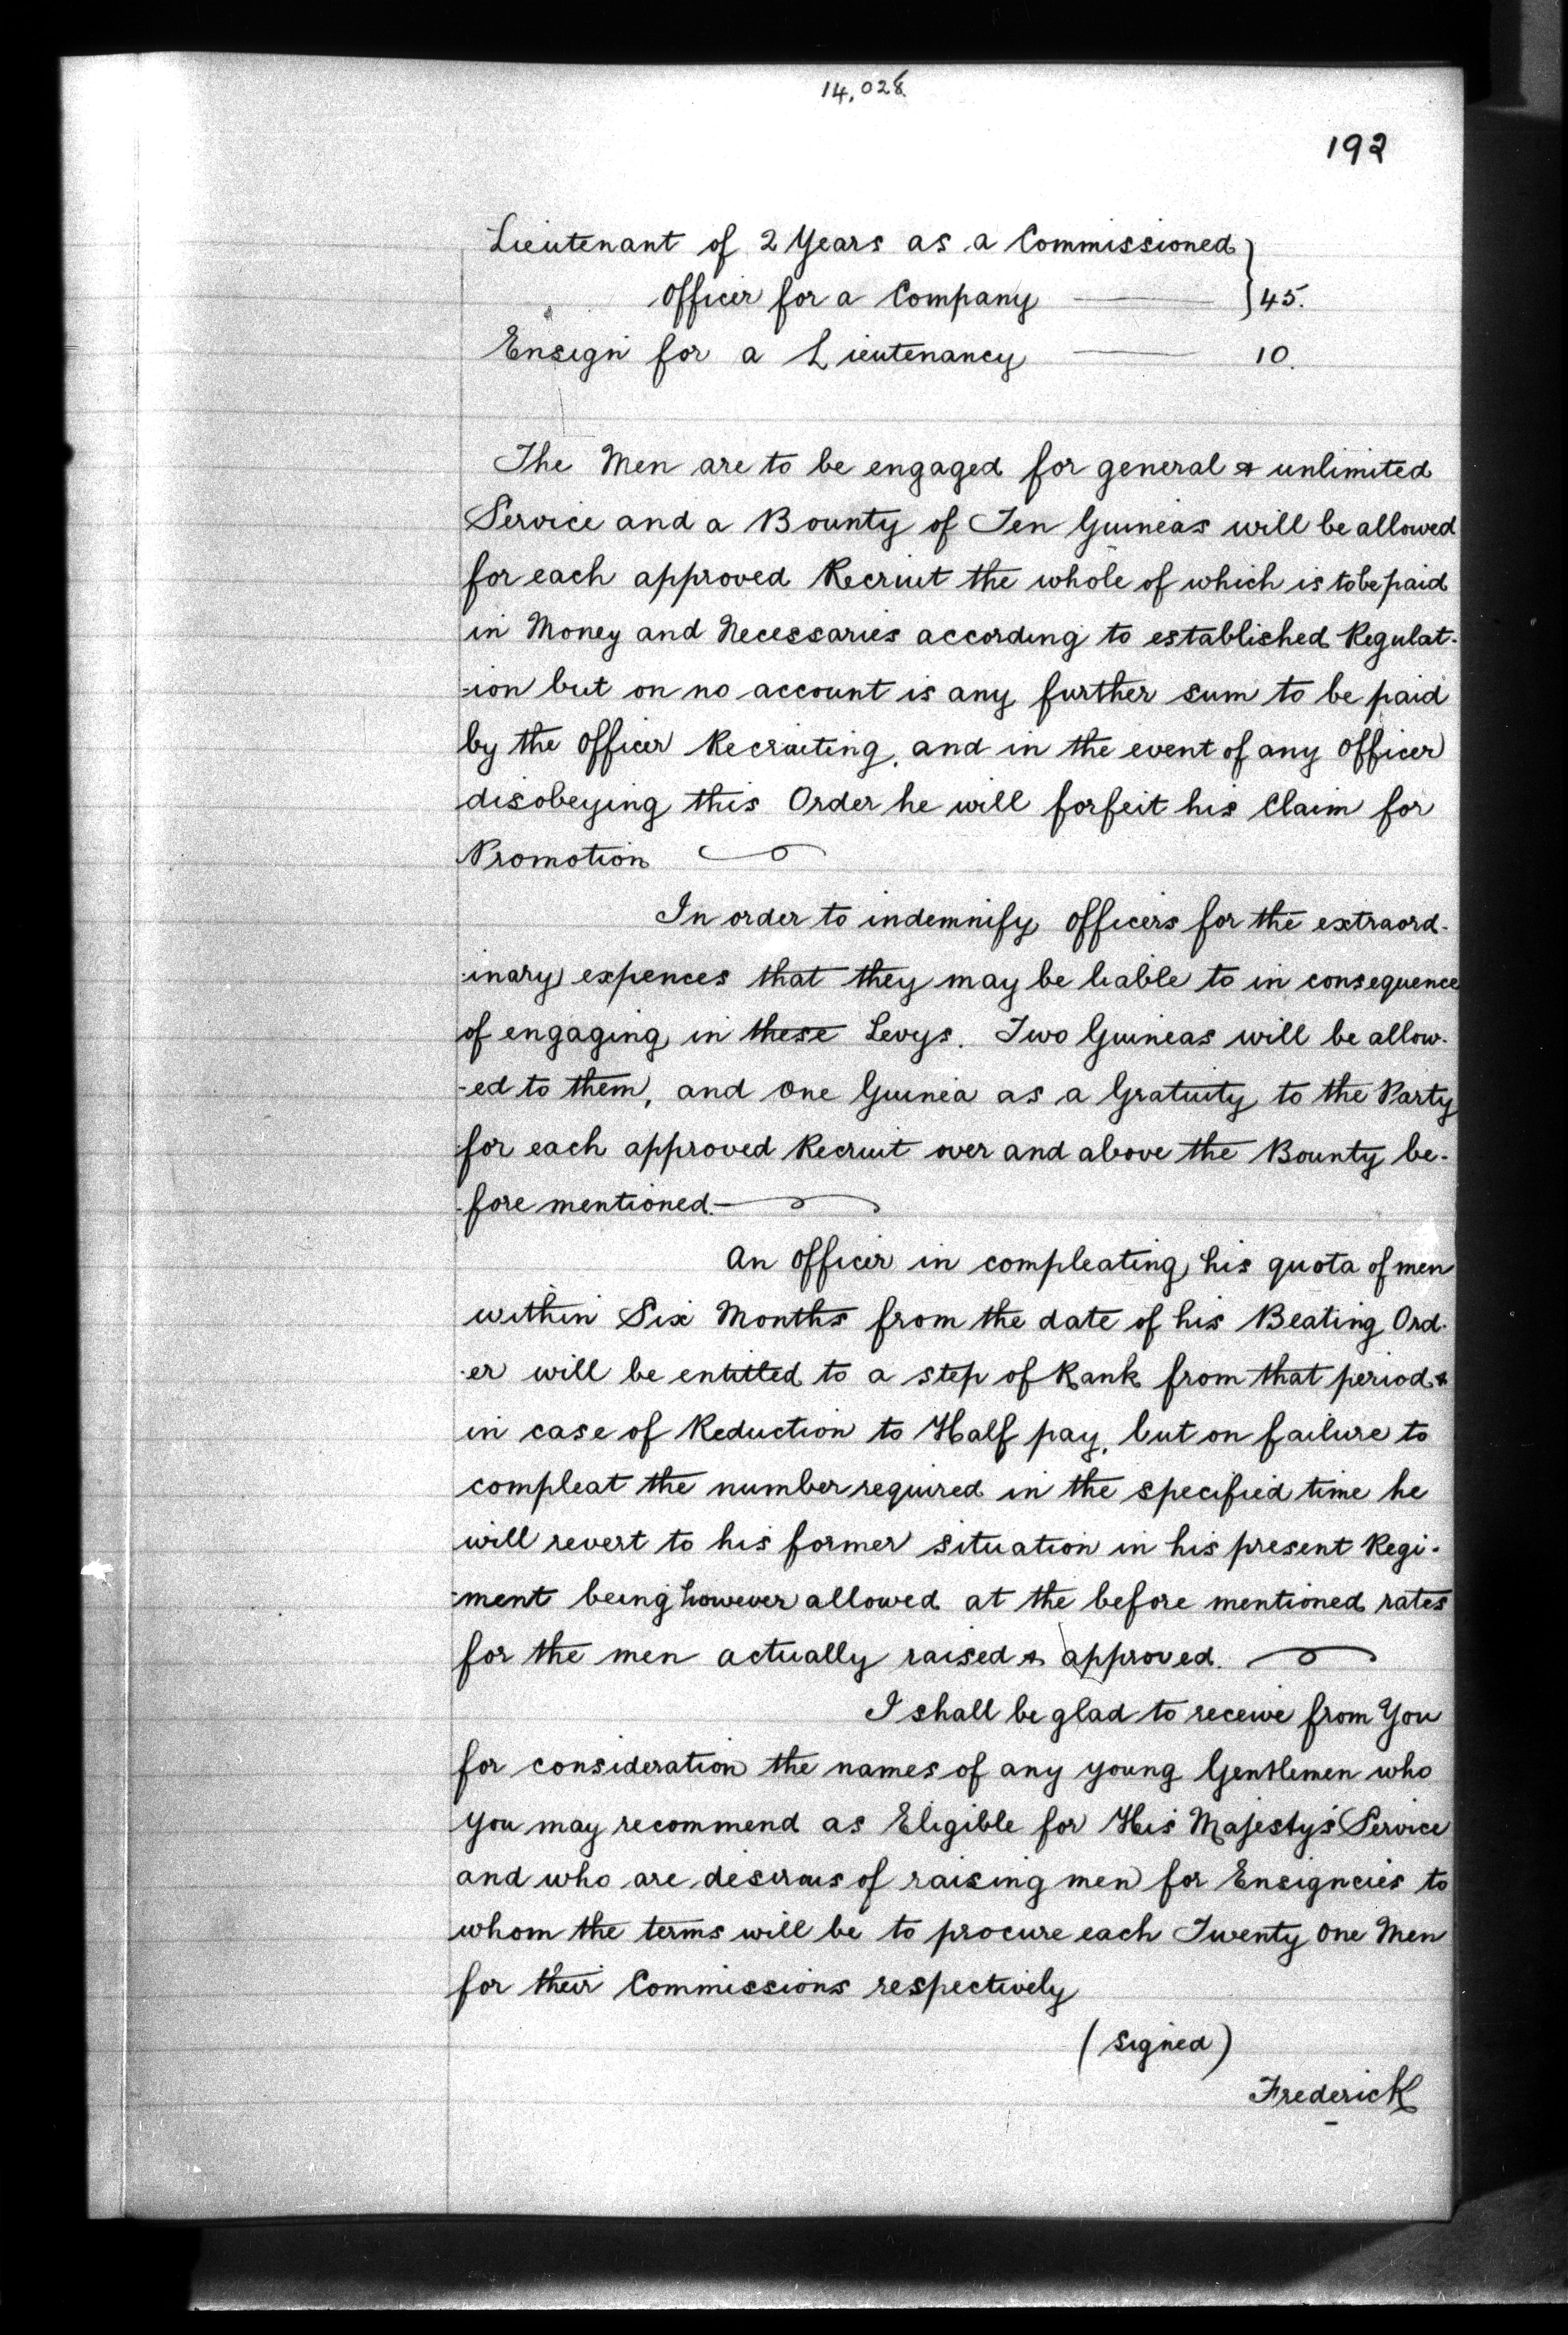 14,028.
192
Lieutenant of 2 Years as a Commissioned
Officer for a Company ——— } 45.
Ensign for a Lieutenancy ——— 10.
The Men are to be engaged for general & unlimited
Service and a Bounty of Ten Guineas will be allowed
for each approved Recruit the whole of which is to be paid
in Money and Necessaries according to established Regulat-
-ion but on no account is any further sum to be paid
by the Officer Recruiting, and in the event of any Officer
disobeying this Order he will forfeit his Claim for
Promotion
In order to indemnify Officers for the extraord-
-inary expences that they may be liable to in consequence
of engaging in these Levys. Two Guineas will be allow-
-ed to them, and One Guinea as a Gratuity to the Party
for each approved Recruit over and above the Bounty be-
-fore mentioned.
An Officer in compleating his quota of men
within Six Months from the date of his Beating Ord-
-er will be entitled to a step of Rank from that period &
in case of Reduction to Half pay, but on failure to
compleat the number required in the specified time he
will revert to his former situation in his present Regi-
-ment being however allowed at the before mentioned rates
for the men actually raised & approved.
I shall be glad to receive from You
for consideration the names of any young Gentlemen who
you may recommend as Eligible for His Majesty's Service
and who are desirous of raising men for Ensigncies to
whom the terms will be to procure each Twenty One Men
for their Commissions respectively
(signed)
Frederick